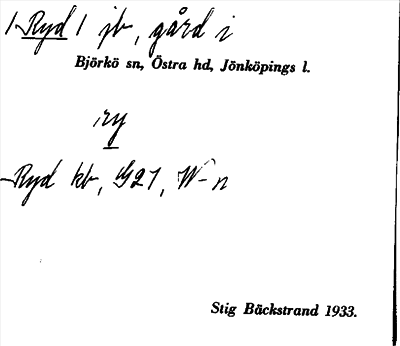 1 Ryd 1 jb, gård i
Björkö sn, Östra hd, Jönköpings l.
ry
Ryd kb, G27, W-n
Stig Bäckstrand 1933.